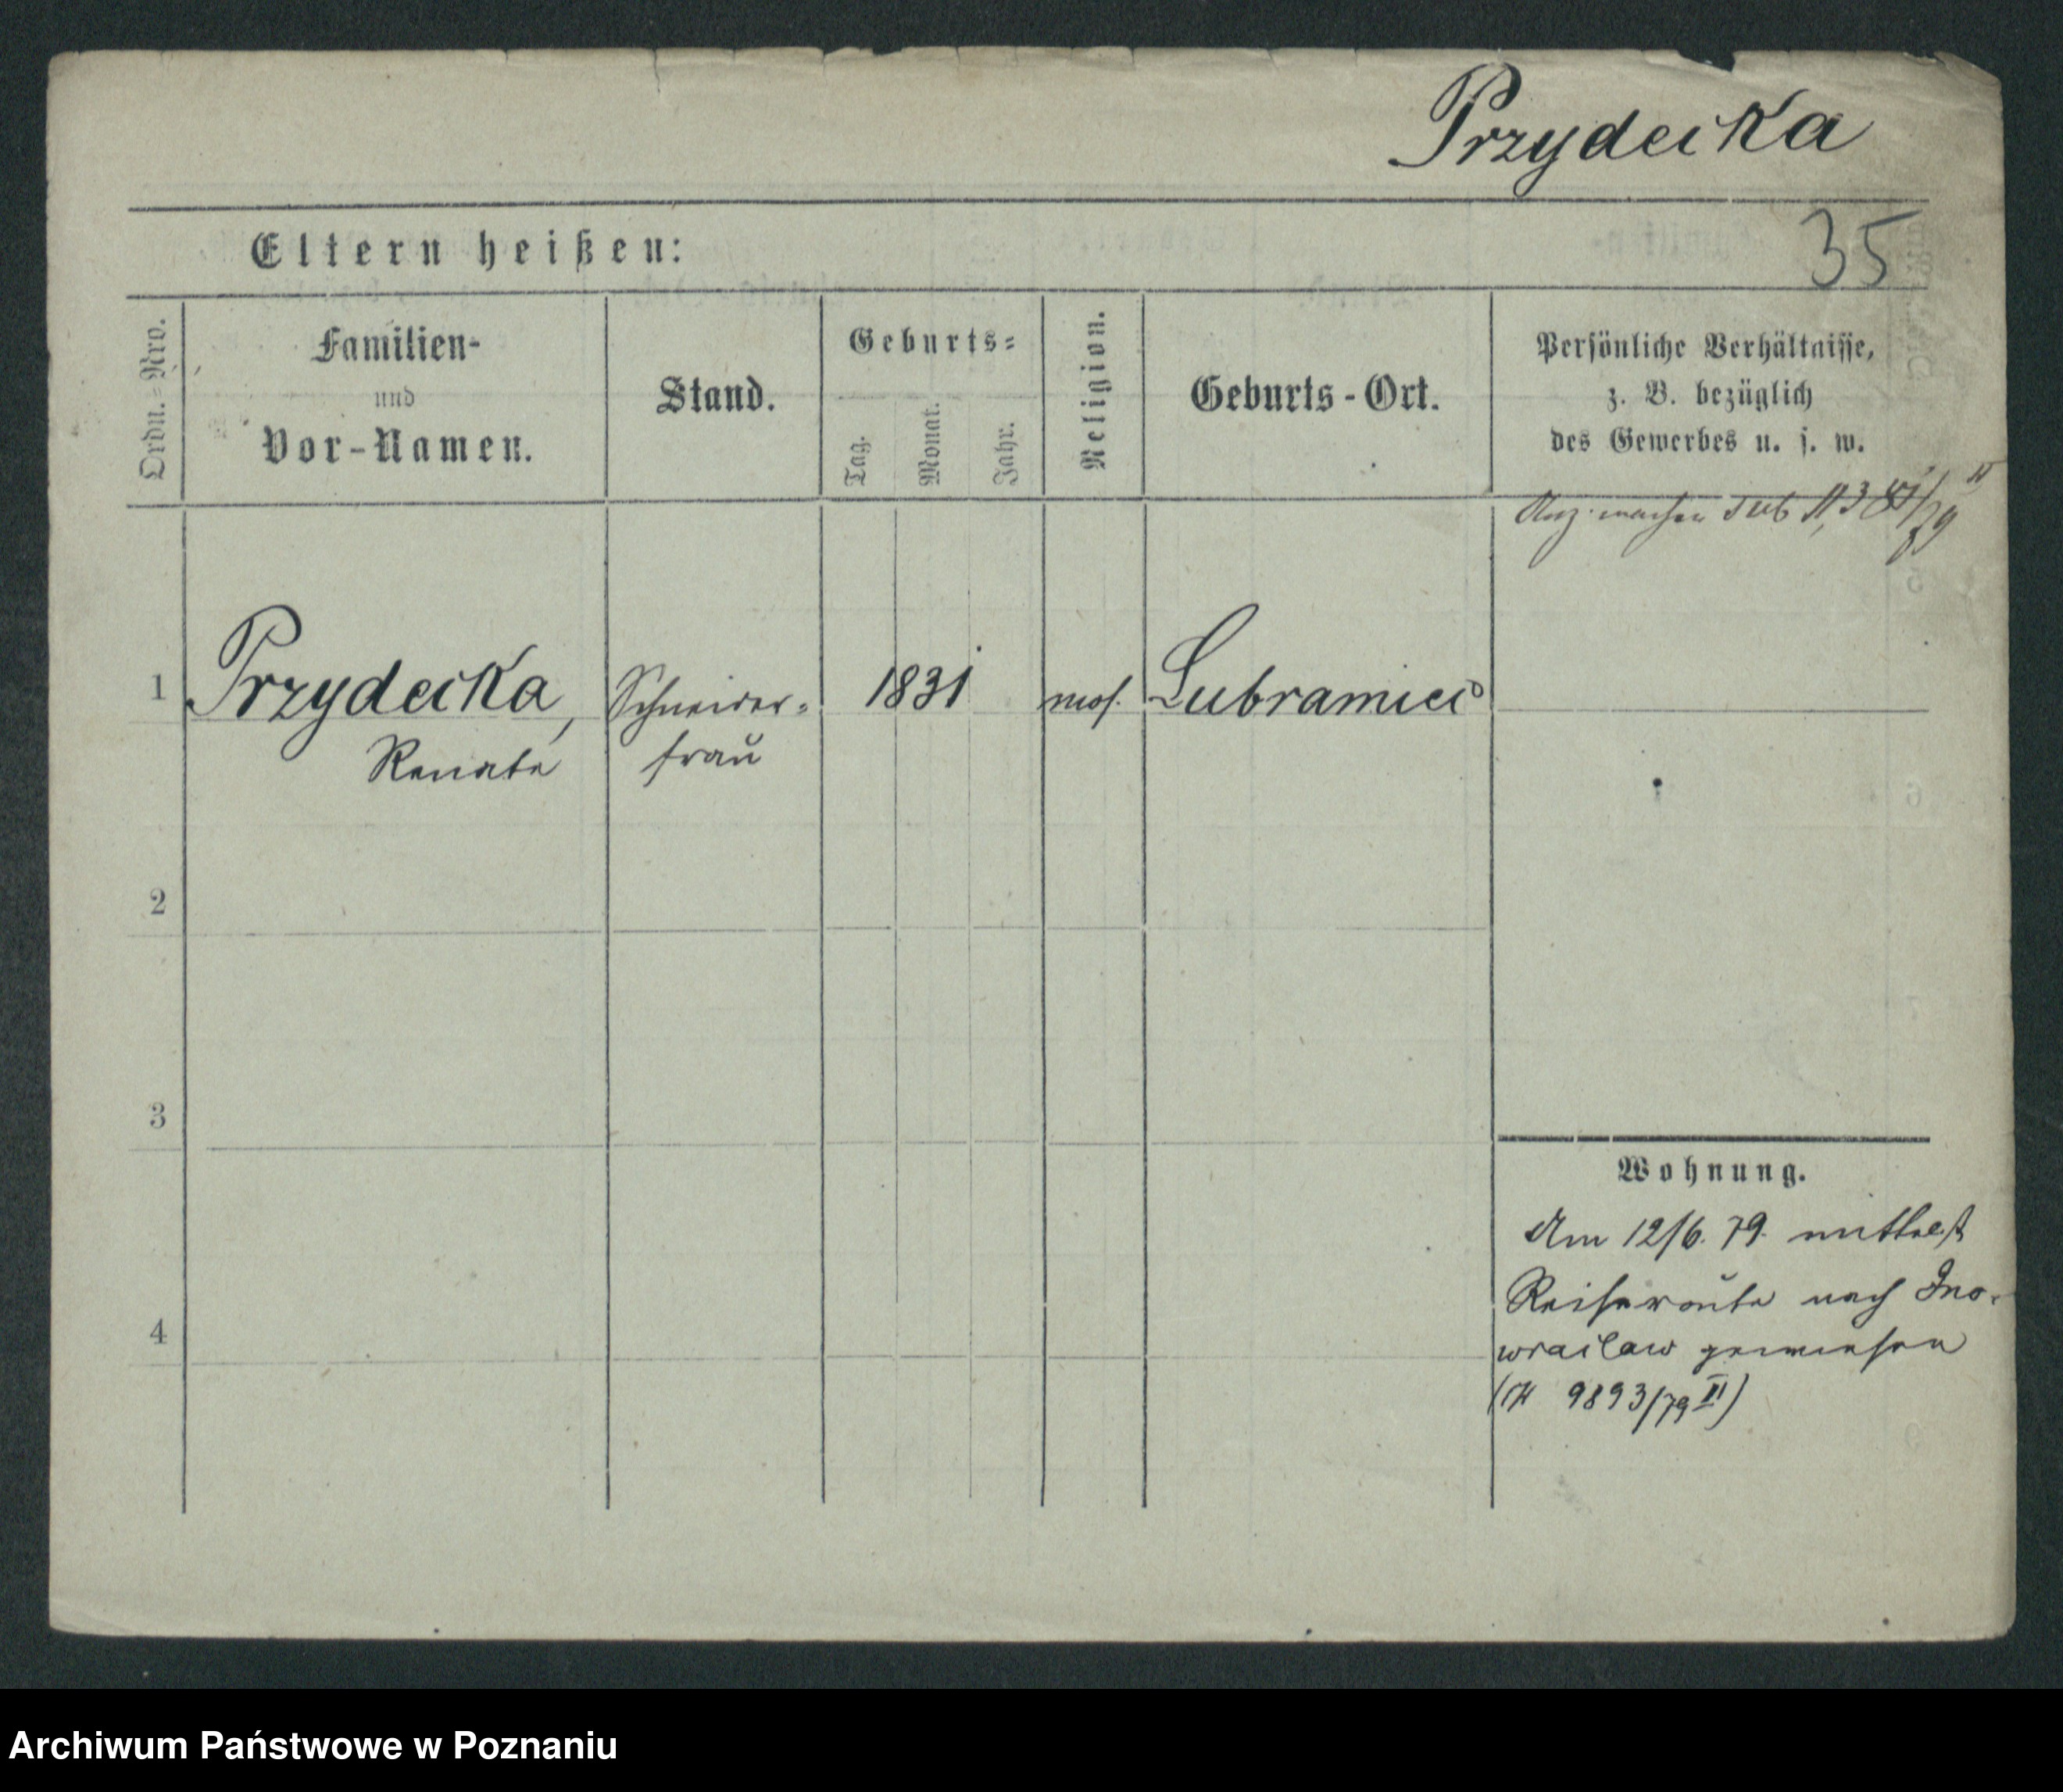 Przydecka
Eltern heißen:
35
Ordn.-Nro.
Familien-
und
Vor-Namen.
Stand.
Geburts-
Tag.
Monat.
Jahr.
Religion.
Geburts-Ort.
Persönliche Verhältnisse,
z. B. bezüglich
des Gewerbes u. s. w.
sub
1
Przydecka,
Renate
Schneider-
frau
1831
mos.
Lubramiec
2
3
4
Wohnung.
Am 12/6. 79. mittelst
Reiseroute nach Ino-
wraclaw gewiesen
9893/79 II)
Archiwum Państwowe w Poznaniu